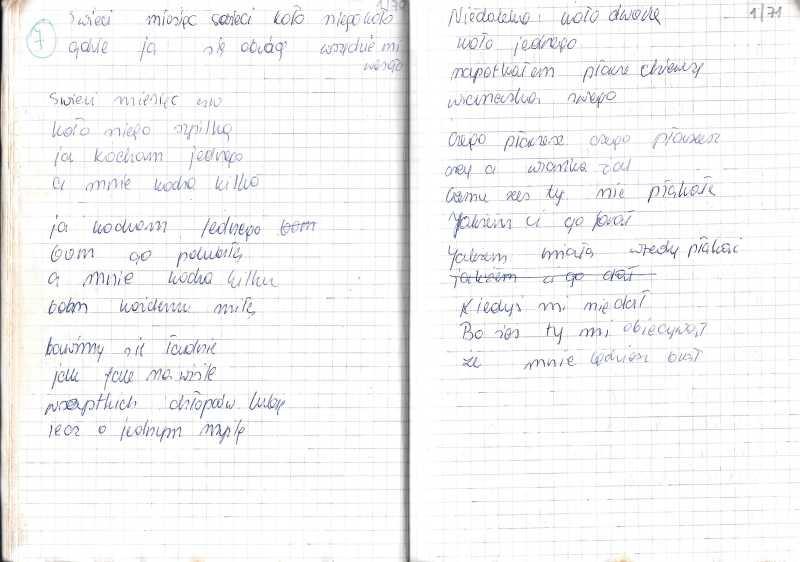 7
Świeci miesiąc świeci koło niego koło
gdzie ja się obrócę wszędzie mi
wesoło
Świeci miesiąc
koło niego szpilką
ja kocham jednego
a mnie kocha kilko
ja kocham jednego bom
bom go polubiła
a mnie kocha kilku
bom każdemu miła
bawimy się ładnie
jak fale na wiśle
wszystkich chłopów lubię
lecz o jednym myślę
1/71
Niedaleko koło dwora
koło jednego
napotkałem płacze dziewczę
wianeczka swego
Czego płaczesz czego płaczesz
czy ci wianka żal
żes ty nie płakała
Jakżem ci go brał
Jakżem miała wtedy płakać
jakżem ci go dał
Kiedyś mi nie dał
Bo żeś ty mi obiecywał
że mnie będziesz brał